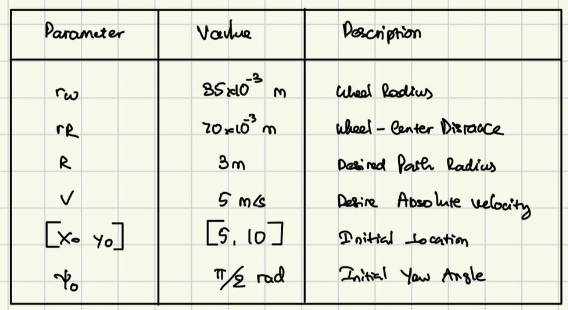 Parameter Value Description
rw 85x10^-3 m Wheel Radius
rR 70x10^-3 m Wheel-Center Distance
R 3m Desired Path Radius
V 5 m/s Desire Absolute velocity
[X0 Y0] [5, 10] Initial Location
ψ0 π/2 rad Initial Yaw Angle